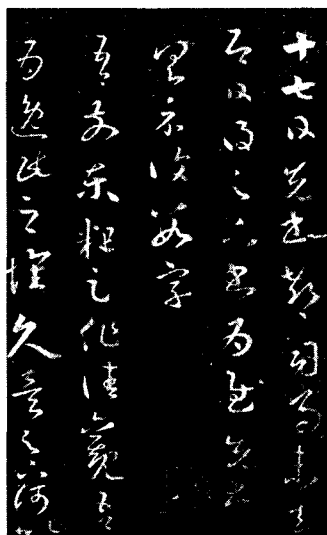 十七日先書郗司馬未去
即日得足下書為慰先書
具示復數字
吾前東粗足作佳觀吾
為逸民之懷久矣足下何以